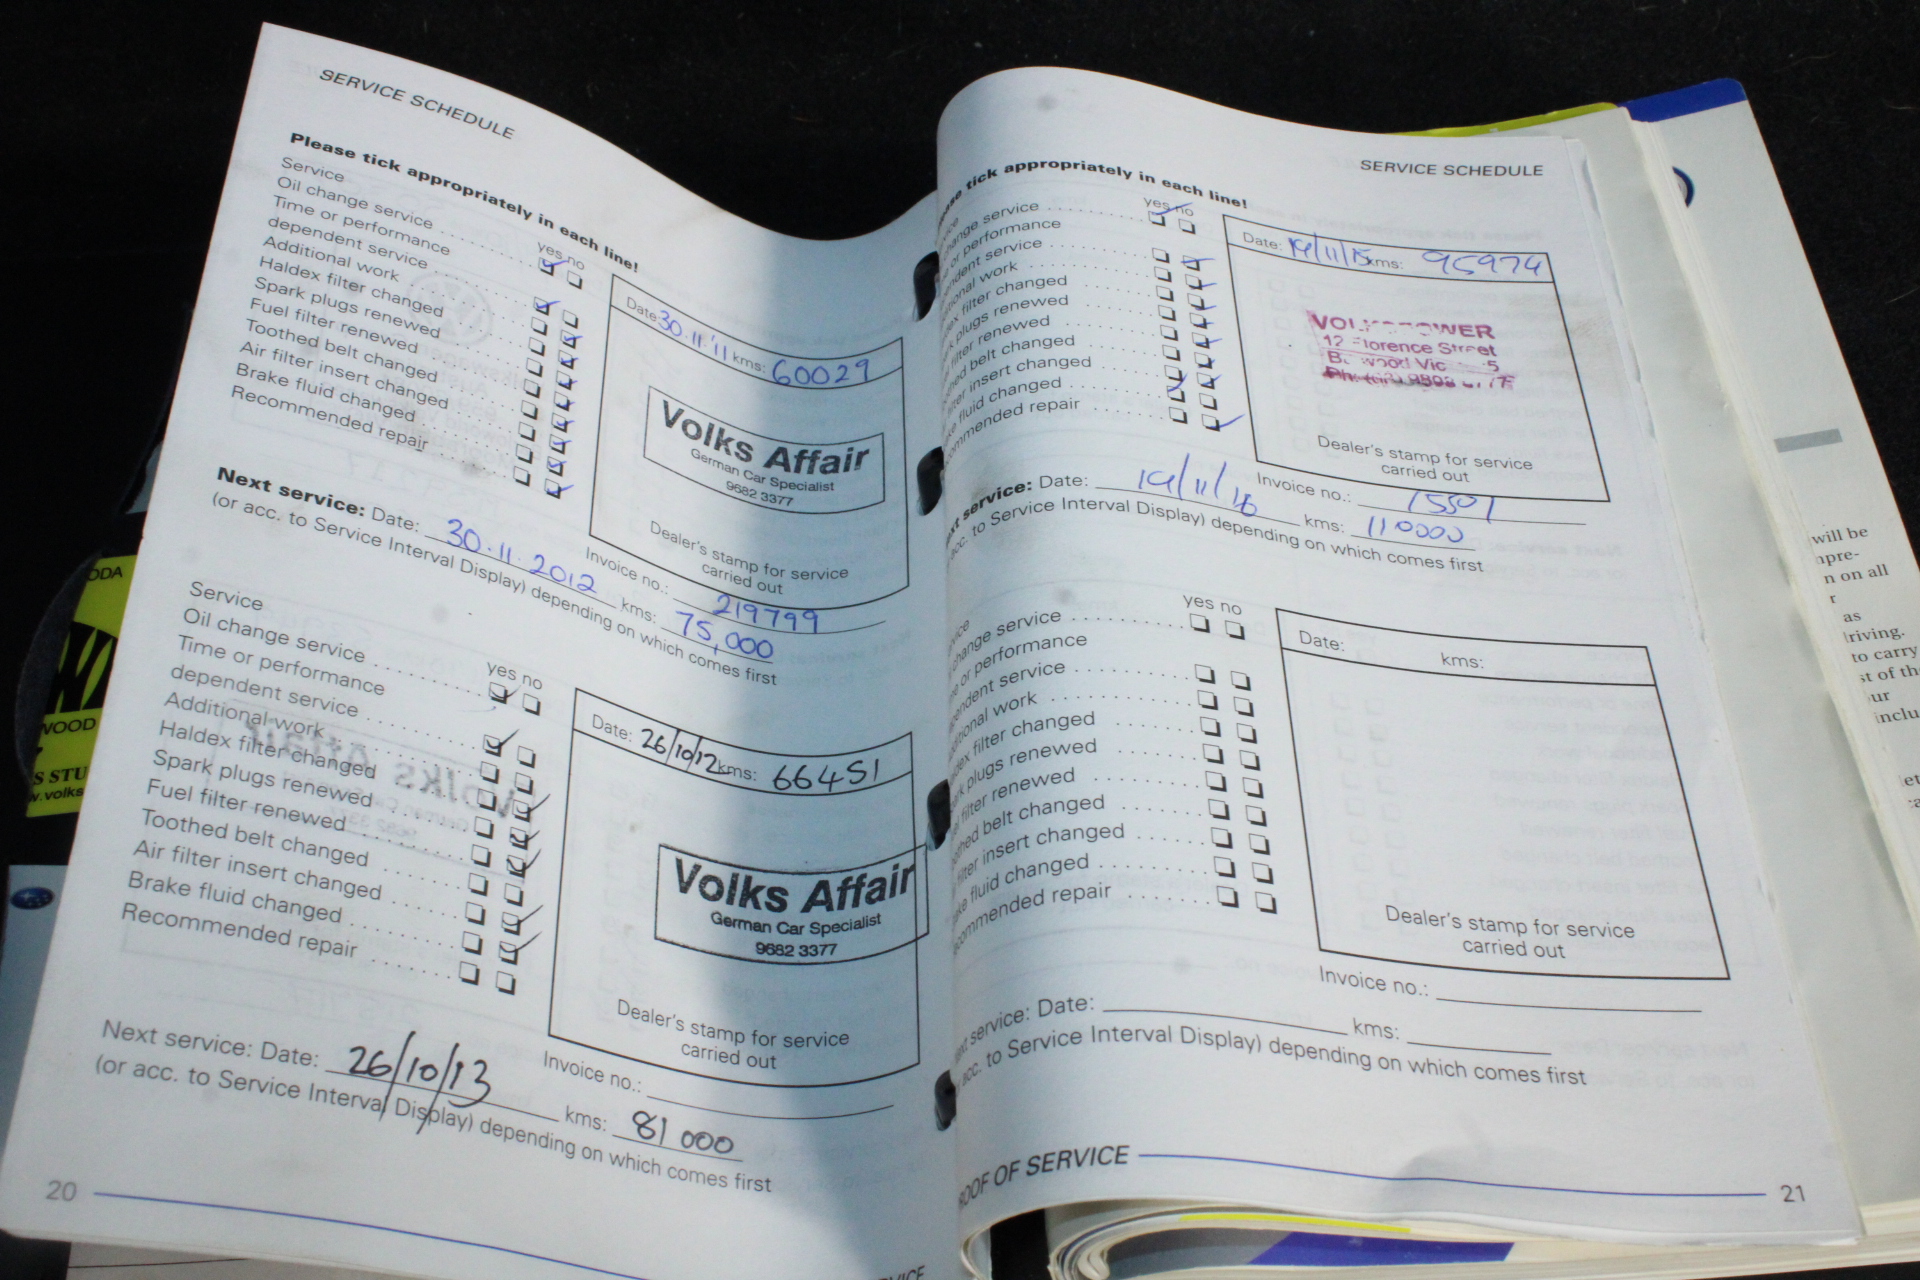 SERVICE SCHEDULE
Please tick appropriately in each line!
Service
yes no
Oil change service
Time or performance
dependent service
Additional work
Haldex filter changed
Spark plugs renewed
Fuel filter renewed
Toothed belt changed
Air filter insert changed
Brake fluid changed
Recommended repair
Date: 30.11.'11 kms: 60029
Volks Affair
German Car Specialist
9682 3377
Dealer's stamp for service
carried out
Invoice no.: 219799
Next service: Date: 30.11.2012 kms: 75,000
(or acc. to Service Interval Display) depending on which comes first
Service
yes no
Oil change service
Time or performance
dependent service
Additional work
Haldex filter changed
Spark plugs renewed
Fuel filter renewed
Toothed belt changed
Air filter insert changed
Brake fluid changed
Recommended repair
Date: 26/10/12 kms: 66451
Volks Affair
German Car Specialist
9682 3377
Dealer's stamp for service
carried out
Invoice no.:
Next service: Date: 26/10/13 kms: 81 000
(or acc. to Service Interval Display) depending on which comes first
20
SERVICE SCHEDULE
tick appropriately in each line!
yes no
service
performance
service
work
filter changed
plugs renewed
filter renewed
belt changed
insert changed
fluid changed
repair
Date: 19/11/15 kms: 95974
12 Florence Street
Vic
Dealer's stamp for service
carried out
Invoice no.: 15501
service: Date: 19/11/16 kms: 110000
acc. to Service Interval Display) depending on which comes first
yes no
change service
or performance
service
work
filter changed
plugs renewed
filter renewed
belt changed
insert changed
fluid changed
repair
Date: kms:
Dealer's stamp for service
carried out
Invoice no.:
service: Date: kms:
acc. to Service Interval Display) depending on which comes first
OF SERVICE
21
will be
n on all
r
as
to carry